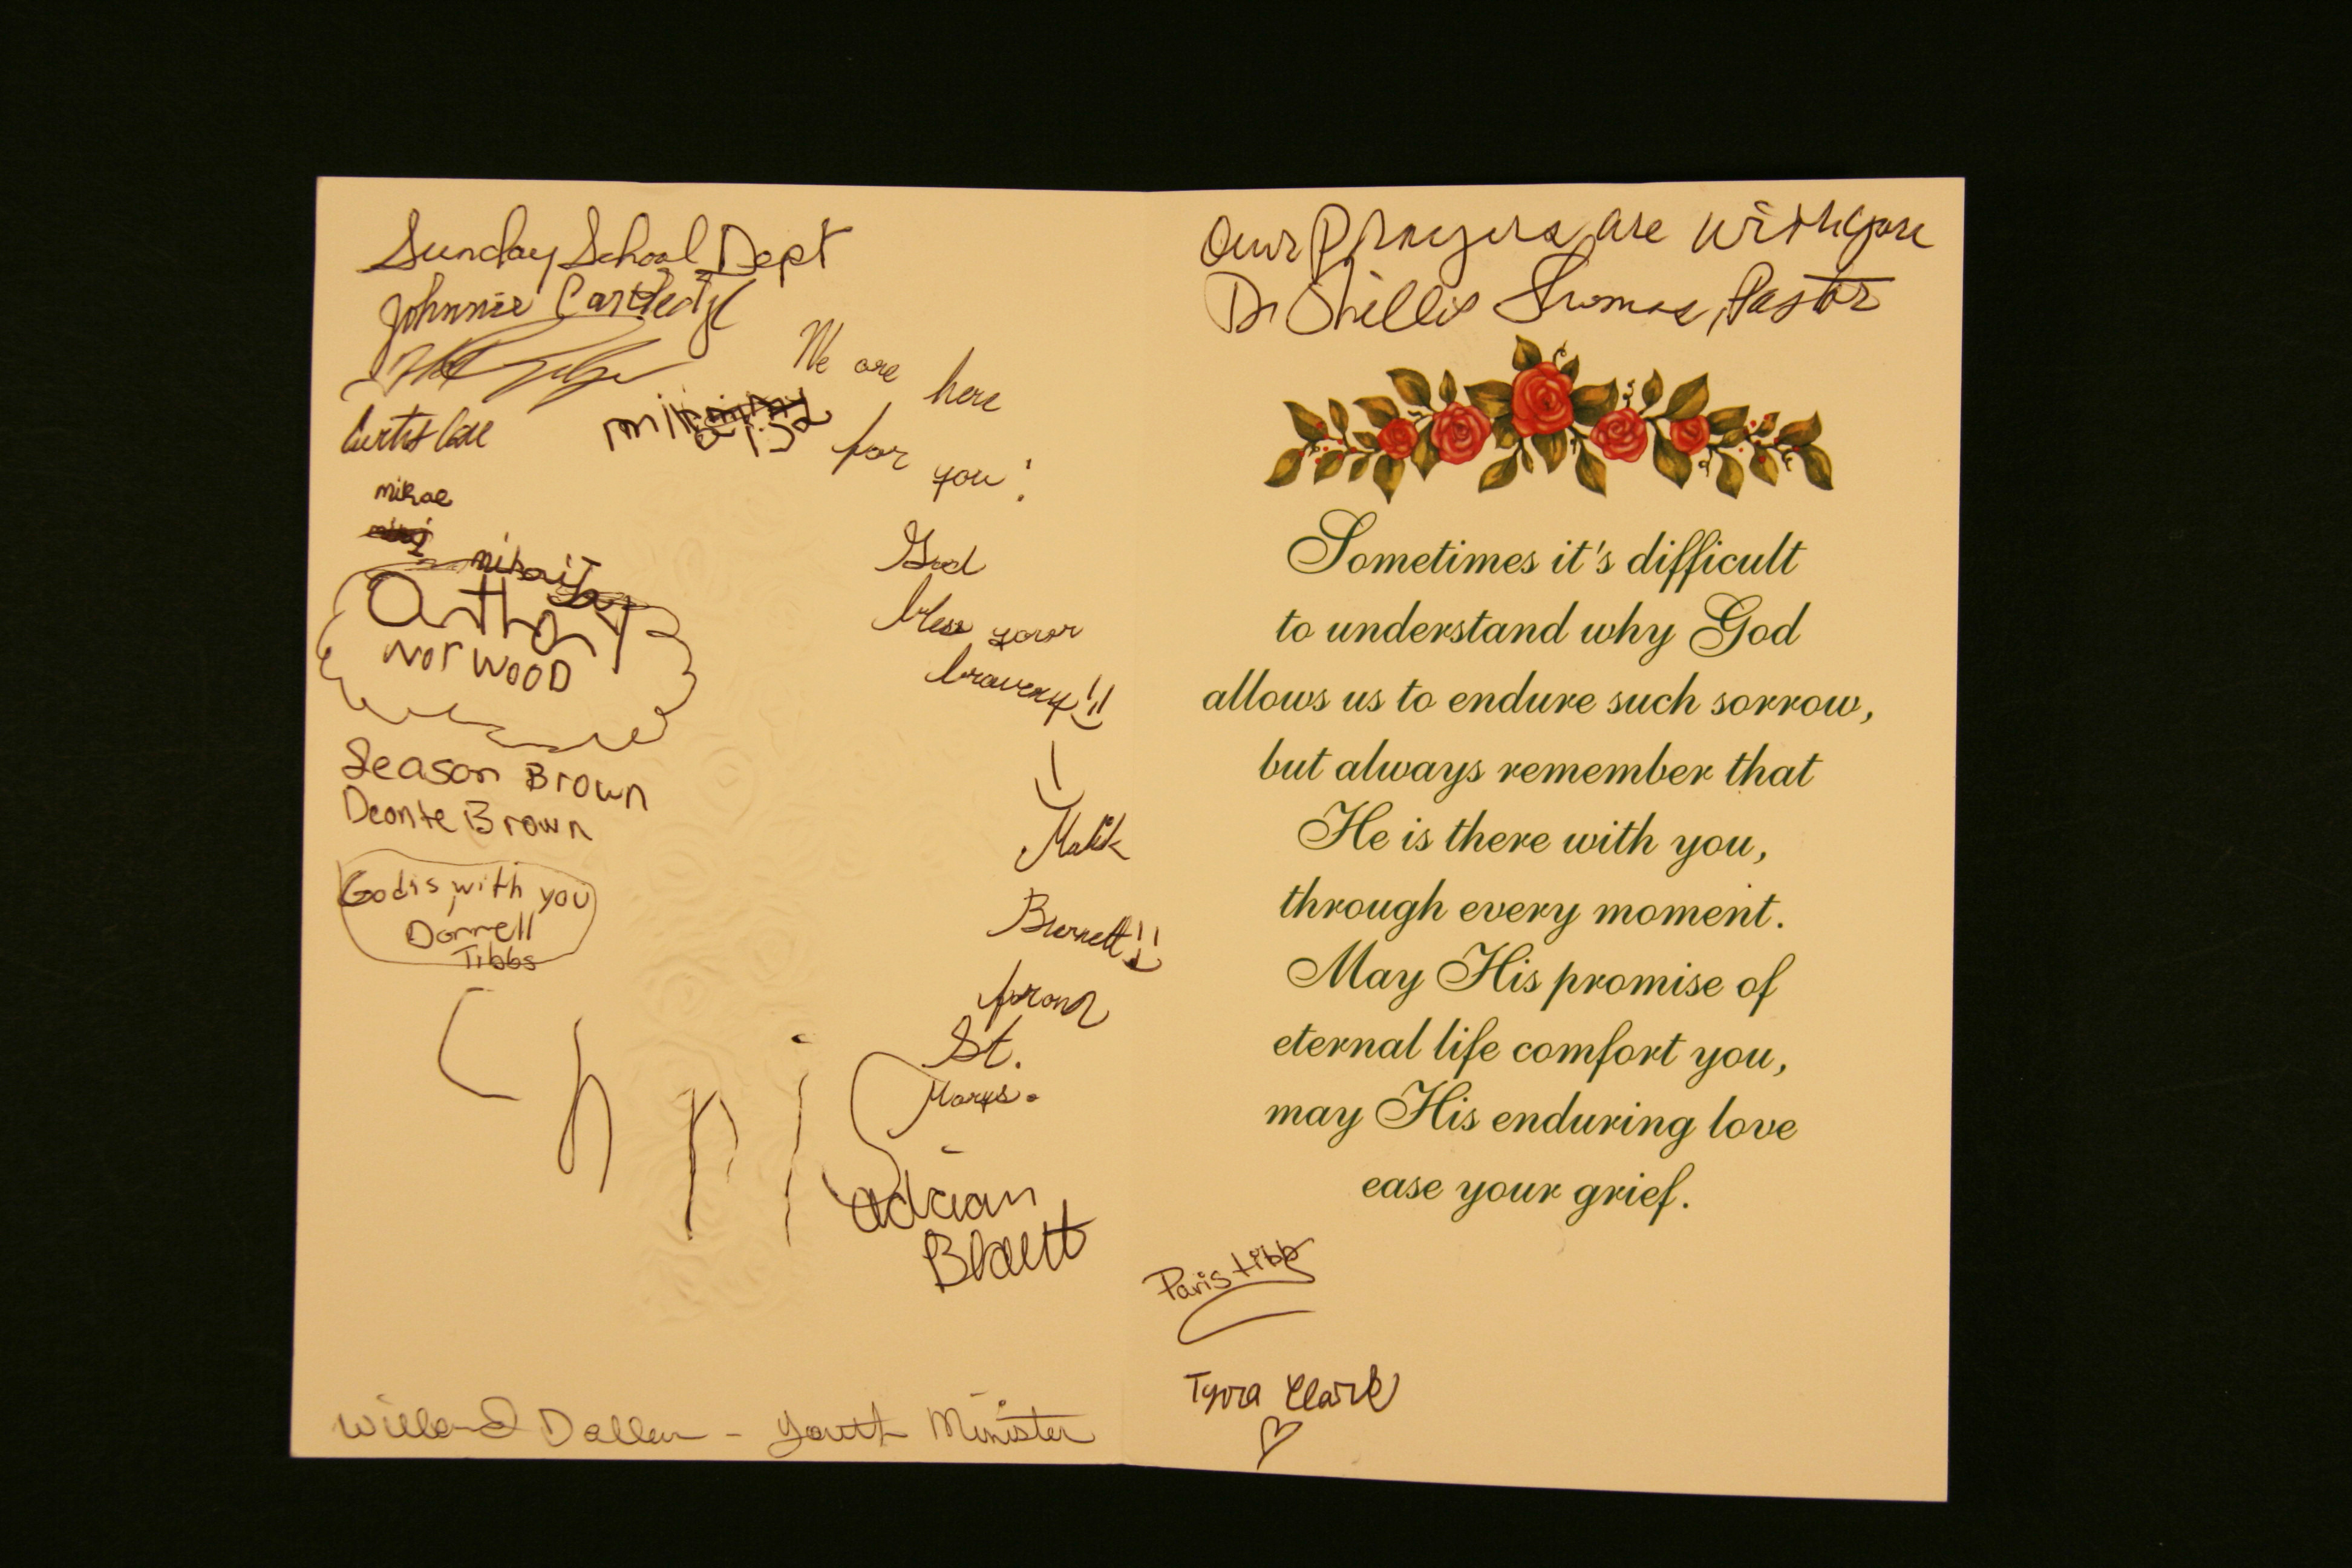 Sunday School Dept
Johnnie Cartledge
Curtis Cole
mikae
Anthony
Norwood
Season Brown
Deonte Brown
God is with you
Darrell
Tibbs
Chris
We are here
for you!
God
bless your
bravery!!
Malik
Burnett!!
from
St.
Marys.
Adrian
Willand Dallan - Youth Minister
Our Prayers are with you
Dr Shellis Thomas, Pastor
Sometimes it's difficult
to understand why God
allows us to endure such sorrow,
but always remember that
He is there with you,
through every moment.
May His promise of
eternal life comfort you,
may His enduring love
ease your grief.
Paris tibb
Tyvra Clark